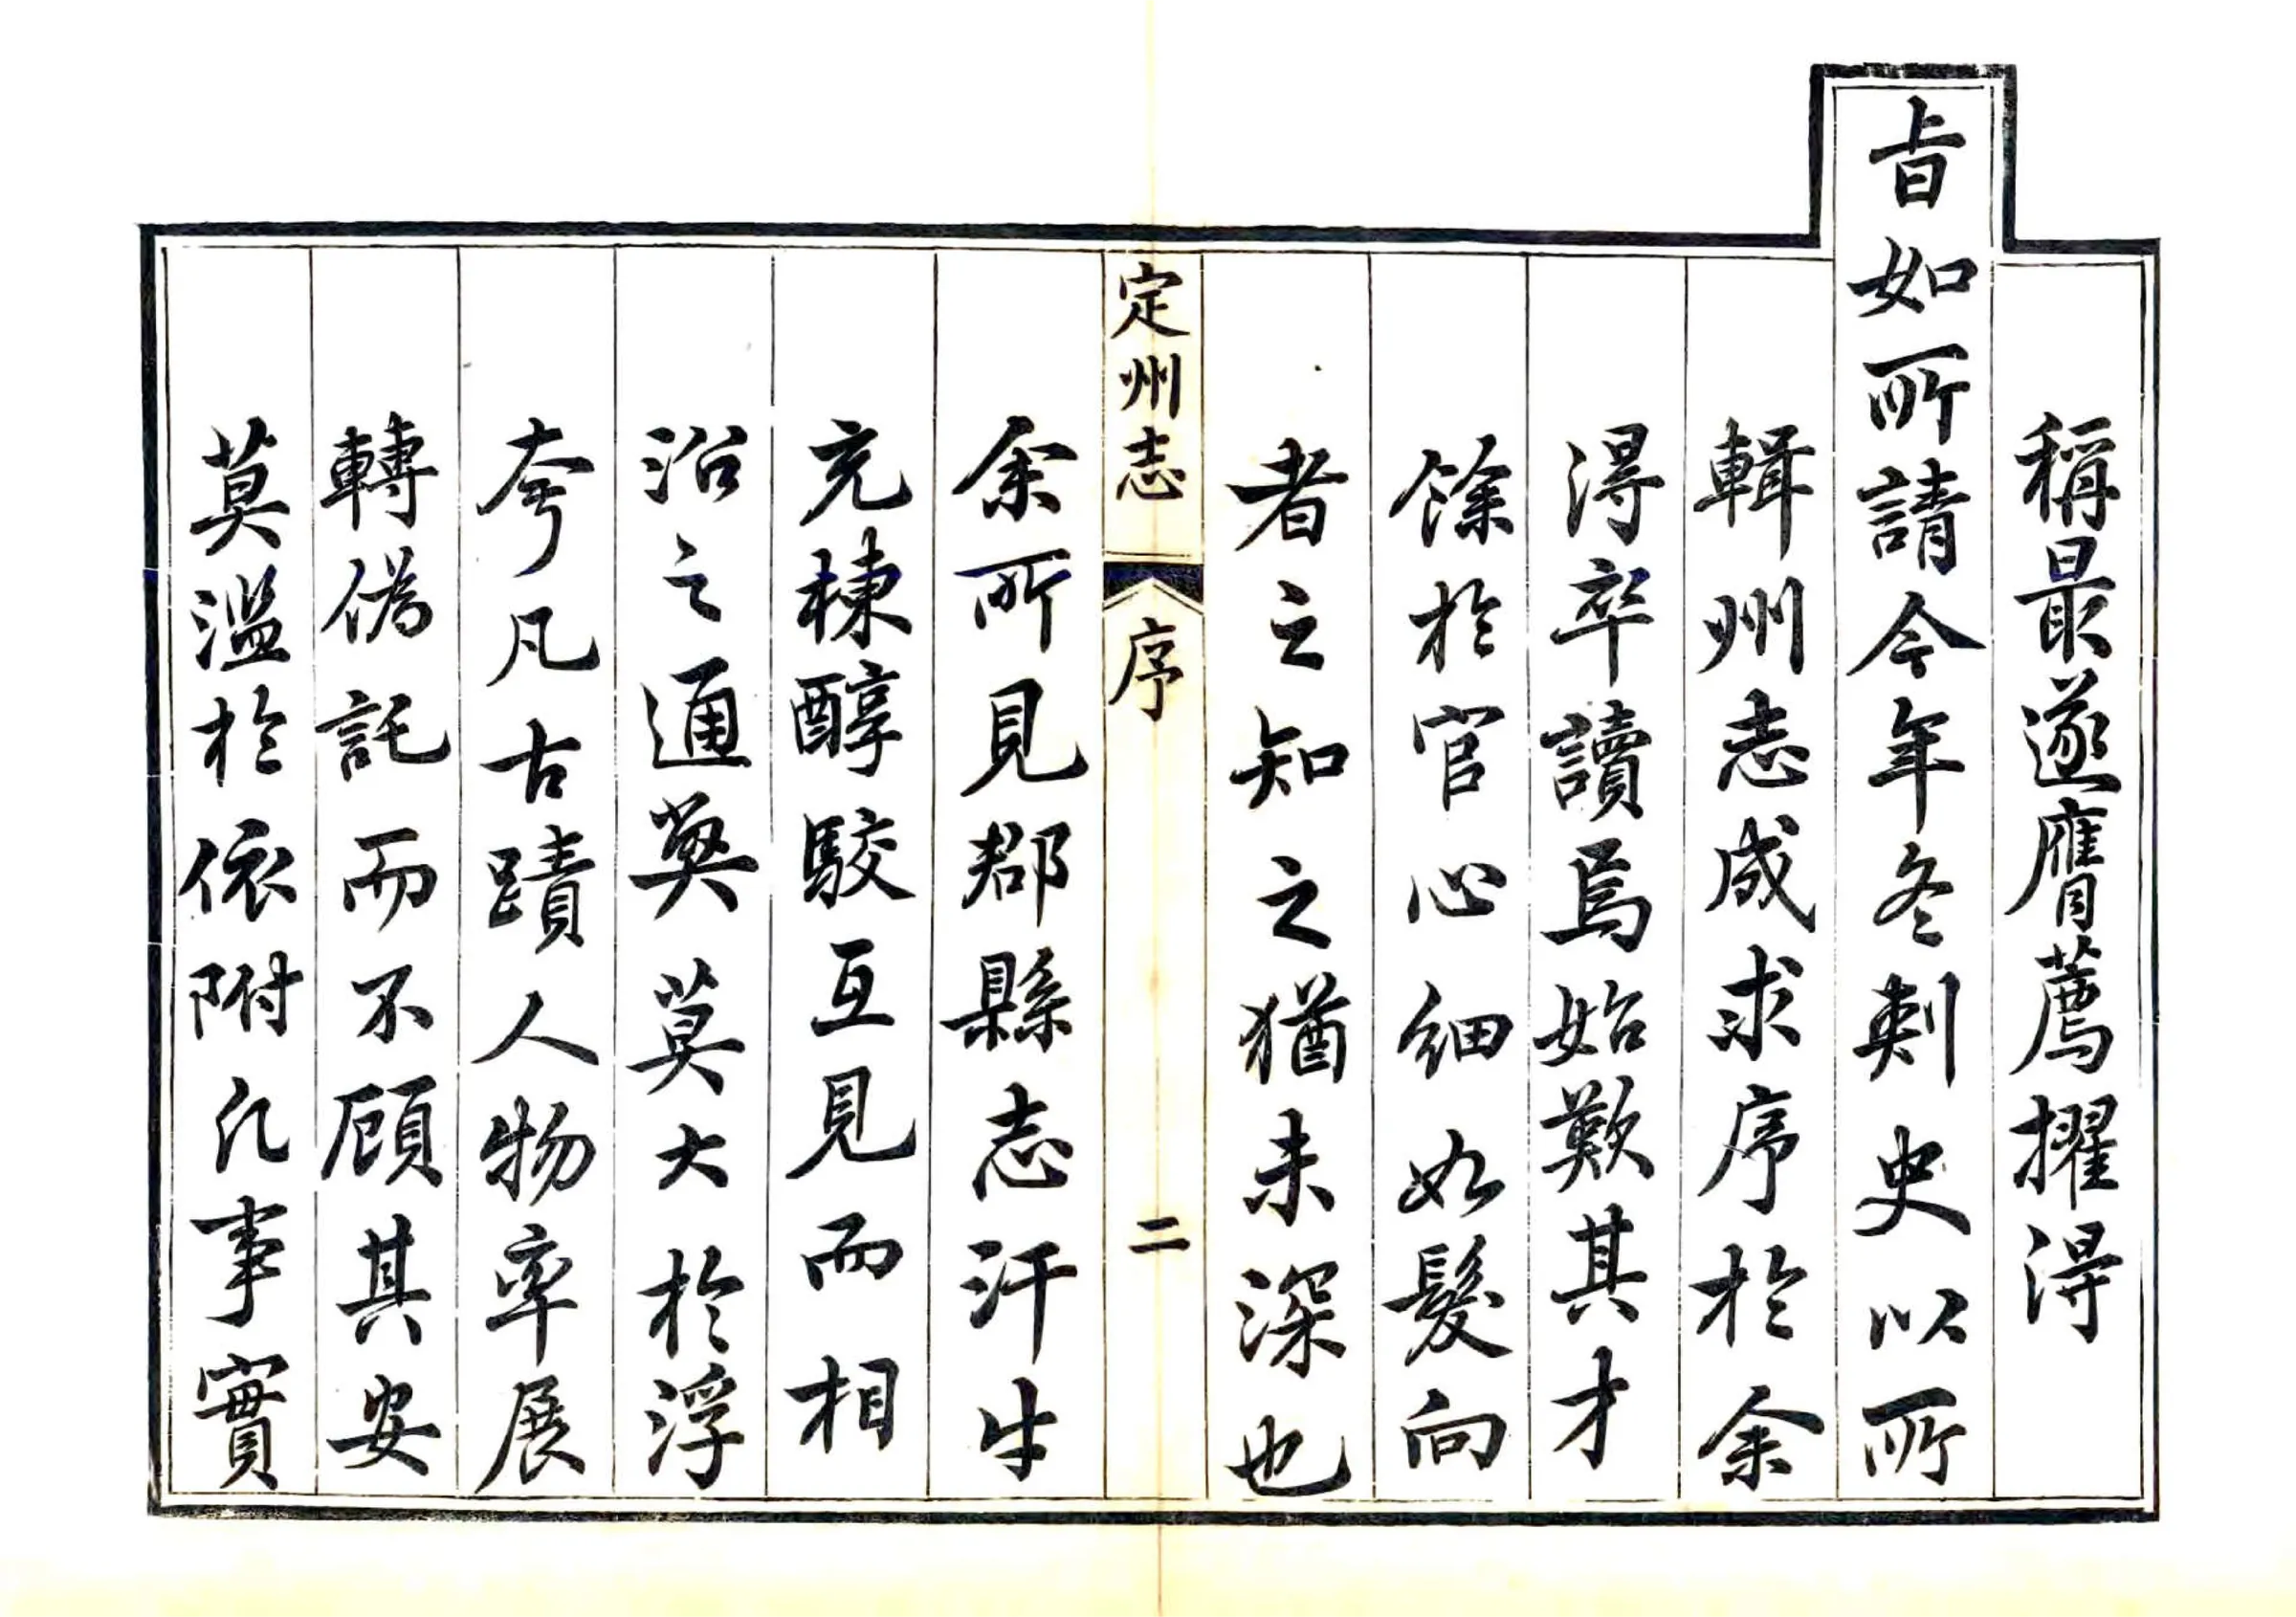 稱最遂膺薦擢得
旨如所請今年冬刺史以所
輯州志成求序於余
得卒讀焉始歎其才
餘於官心細如髮向
者之知之猶未深也
定州志 序 二
余所見郡縣志汗牛
充棟醇駁互見而相
沿之通獘莫大於浮
夸凡古蹟人物率展
轉偽託而不顧其安
莫濫於依附凡事實